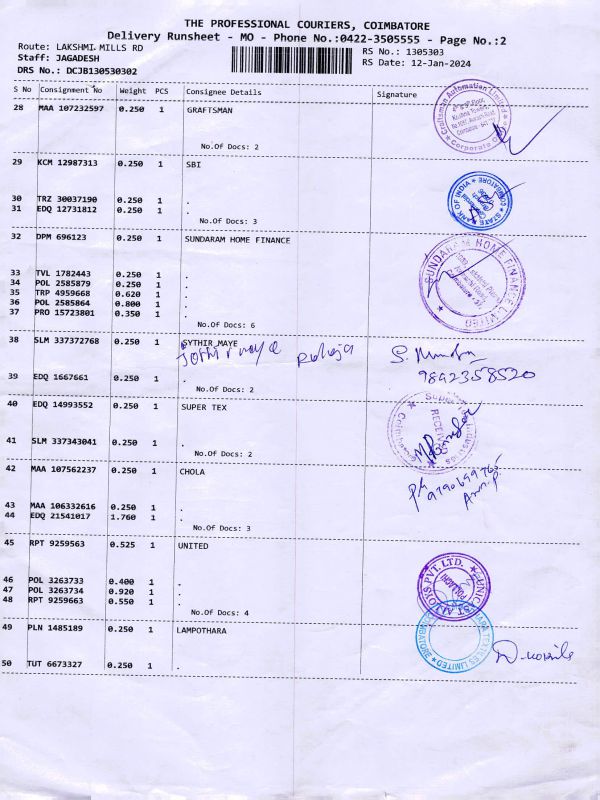 THE PROFESSIONAL COURIERS, COIMBATORE
Delivery Runsheet - MO - Phone No.:0422-3505555 - Page No.:2
Route: LAKSHMI MILLS RD
RS No.: 1305303
Staff: JAGADESH
RS Date: 12-Jan-2024
DRS No.: DCJB130530302
S No Consignment No Weight PCS Consignee Details Signature
28 MAA 107232597 0.250 1 GRAFTSMAN
No.Of Docs: 2
29 KCM 12987313 0.250 1 SBI
30 TRZ 30037190 0.250 1 .
31 EDQ 12731812 0.250 1 .
No.Of Docs: 3
STATE BANK OF INDIA
COIMBATORE
32 DPM 696123 0.250 1 SUNDARAM HOME FINANCE
SUNDARAM HOME FINANCE LIMITED
33 TVL 1782443 0.250 1 .
34 POL 2585879 0.250 1 .
35 TRP 4959668 0.620 1 .
36 POL 2585864 0.800 1 .
37 PRO 15723801 0.350 1 .
No.Of Docs: 6
38 SLM 337372768 0.250 1 SYTHIR MAYE
9892358520
39 EDQ 1667661 0.250 1 .
No.Of Docs: 2
40 EDQ 14993552 0.250 1 SUPER TEX
41 SLM 337343041 0.250 1 .
No.Of Docs: 2
42 MAA 107562237 0.250 1 CHOLA
43 MAA 106332616 0.250 1 .
44 EDQ 21541017 1.760 1 .
No.Of Docs: 3
45 RPT 9259563 0.525 1 UNITED
46 POL 3263733 0.400 1 .
47 POL 3263734 0.920 1 .
48 RPT 9259663 0.550 1 .
No.Of Docs: 4
UNICAST ALLOYS PVT. LTD.
49 PLN 1485189 0.250 1 LAMPOTHARA
50 TUT 6673327 0.250 1 .